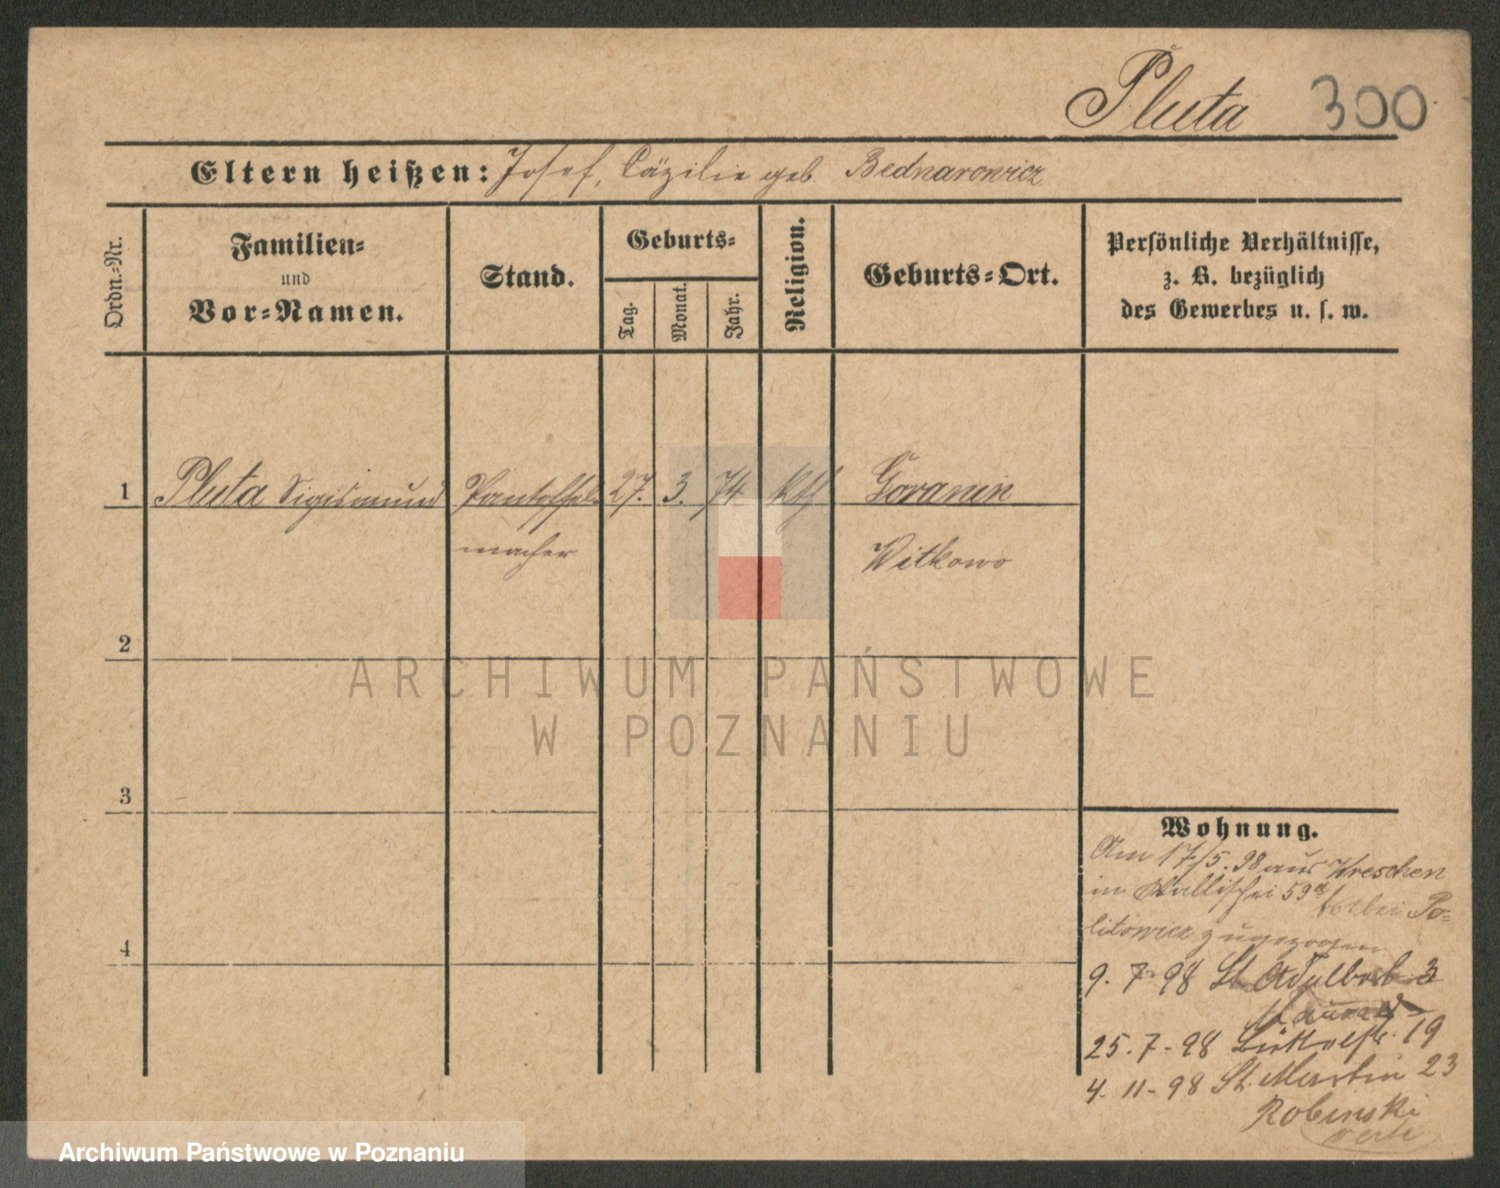 Pluta 300
Eltern heißen: Josef, Cäzilie geb Bednarowicz
Ordn.-Nr.
Familien-
und
Vor-Namen.
Stand.
Geburts-
Tag.
Monat.
Jahr.
Religion.
Geburts-Ort.
Persönliche Verhältnisse,
z. B. bezüglich
des Gewerbes u. s. w.
1 Pluta Sigismund Pantoffel- 27. 3. 74 kth Goranin
macher Witkowo
2
3
4
Wohnung.
Am 17/5. 98 aus Wreschen
in Wallischei 59a bei Po-
litowicz zugezogen
9. 7. 98 St Adalbert 3
25. 7. 98 Büttelstr. 19
4. 11. 98 St. Martin 23
Robinski
ARCHIWUM PAŃSTWOWE
W POZNANIU
Archiwum Państwowe w Poznaniu